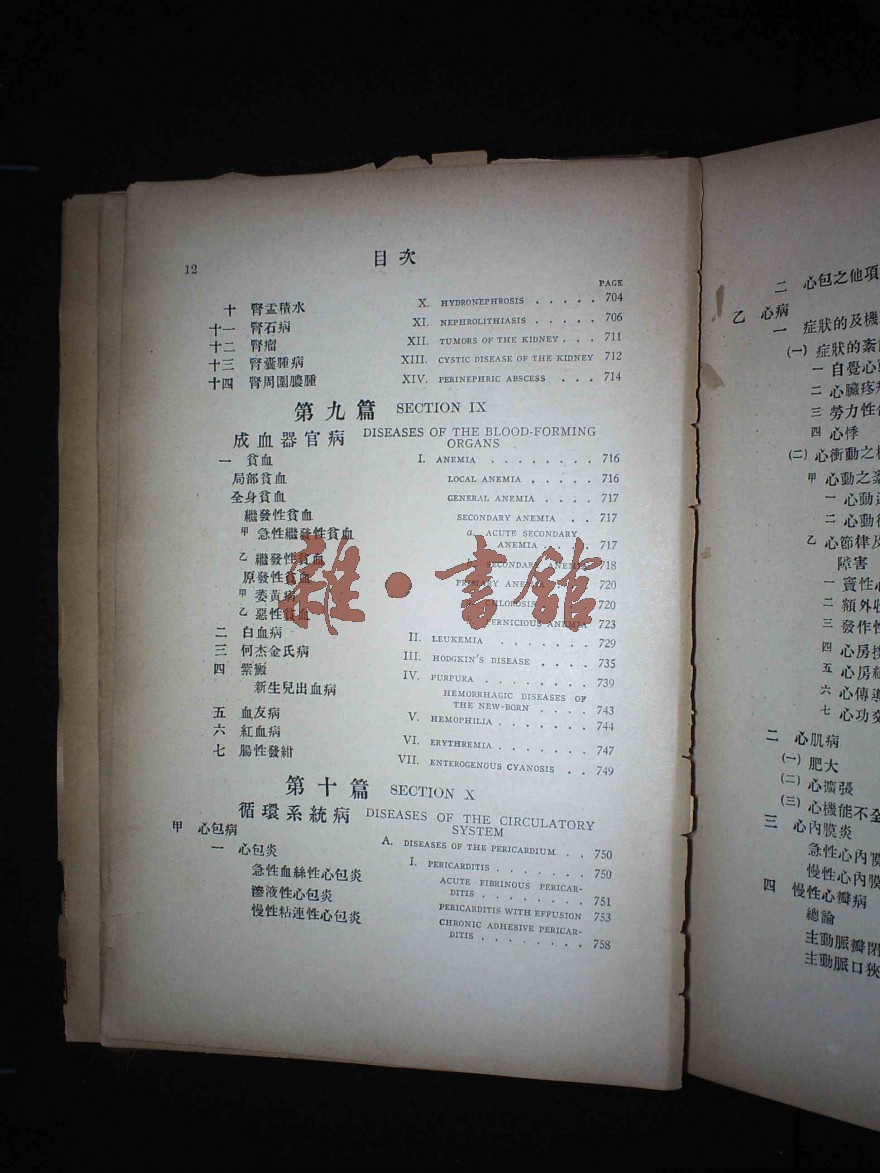 12
目次
PAGE
十 腎盂積水 X. HYDRONEPHROSIS . . . . . 704
十一 腎石病 XI. NEPHROLITHIASIS . . . . . 706
十二 腎瘤 XII. TUMORS OF THE KIDNEY . . . 711
十三 腎囊腫病 XIII. CYSTIC DISEASE OF THE KIDNEY 712
十四 腎周圍膿腫 XIV. PERINEPHRIC ABSCESS . . . 714
第九篇 SECTION IX
成血器官病 DISEASES OF THE BLOOD-FORMING
ORGANS
一 貧血 I. ANEMIA . . . . . . . . 716
局部貧血 LOCAL ANEMIA . . . . . 716
全身貧血 GENERAL ANEMIA . . . . 717
繼發性貧血 SECONDARY ANEMIA . . 717
甲 急性繼發性貧血 a. ACUTE SECONDARY
ANEMIA . . . . 717
乙 繼發性貧血 SECONDARY ANEMIA 718
原發性貧血 PRIMARY ANEMIA 720
甲 萎黃病 CHLOROSIS 720
乙 惡性貧血 PERNICIOUS ANEMIA 723
二 白血病 II. LEUKEMIA . . . . . . . 729
三 何杰金氏病 III. HODGKIN'S DISEASE . . . . 735
四 紫癜 IV. PURPURA . . . . . . . . 739
新生兒出血病 HEMORRHAGIC DISEASES OF
THE NEW-BORN . . . . 743
五 血友病 V. HEMOPHILIA . . . . . . . 744
六 紅血病 VI. ERYTHREMIA . . . . . . . 747
七 腸性發紺 VII. ENTEROGENOUS CYANOSIS . . 749
第十篇 SECTION X
循環系統病 DISEASES OF THE CIRCULATORY
SYSTEM
甲 心包病 A. DISEASES OF THE PERICARDIUM . . 750
一 心包炎 I. PERICARDITIS . . . . . . . 750
急性血絲性心包炎 ACUTE FIBRINOUS PERICAR-
DITIS . . . . . . . . 751
滲液性心包炎 PERICARDITIS WITH EFFUSION 753
慢性粘連性心包炎 CHRONIC ADHESIVE PERICAR-
DITIS . . . . . . . . 758
雜·書館
二 心包之他項
乙 心病
一 症狀的及機
(一) 症狀的紊
一 自覺心
二 心臟疼
三 勞力性
四 心悸
(二) 心衝動之
甲 心動之紊
一 心動
二 心動
乙 心節律及
障害
一 竇性心
二 額外收
三 發作性
四 心房
五 心房
六 心傳導
七 心功交
二 心肌病
(一) 肥大
(二) 心擴張
(三) 心機能不全
三 心內膜炎
急性心內膜
慢性心內膜
四 慢性心瓣病
總論
主動脈瓣閉
主動脈口狹